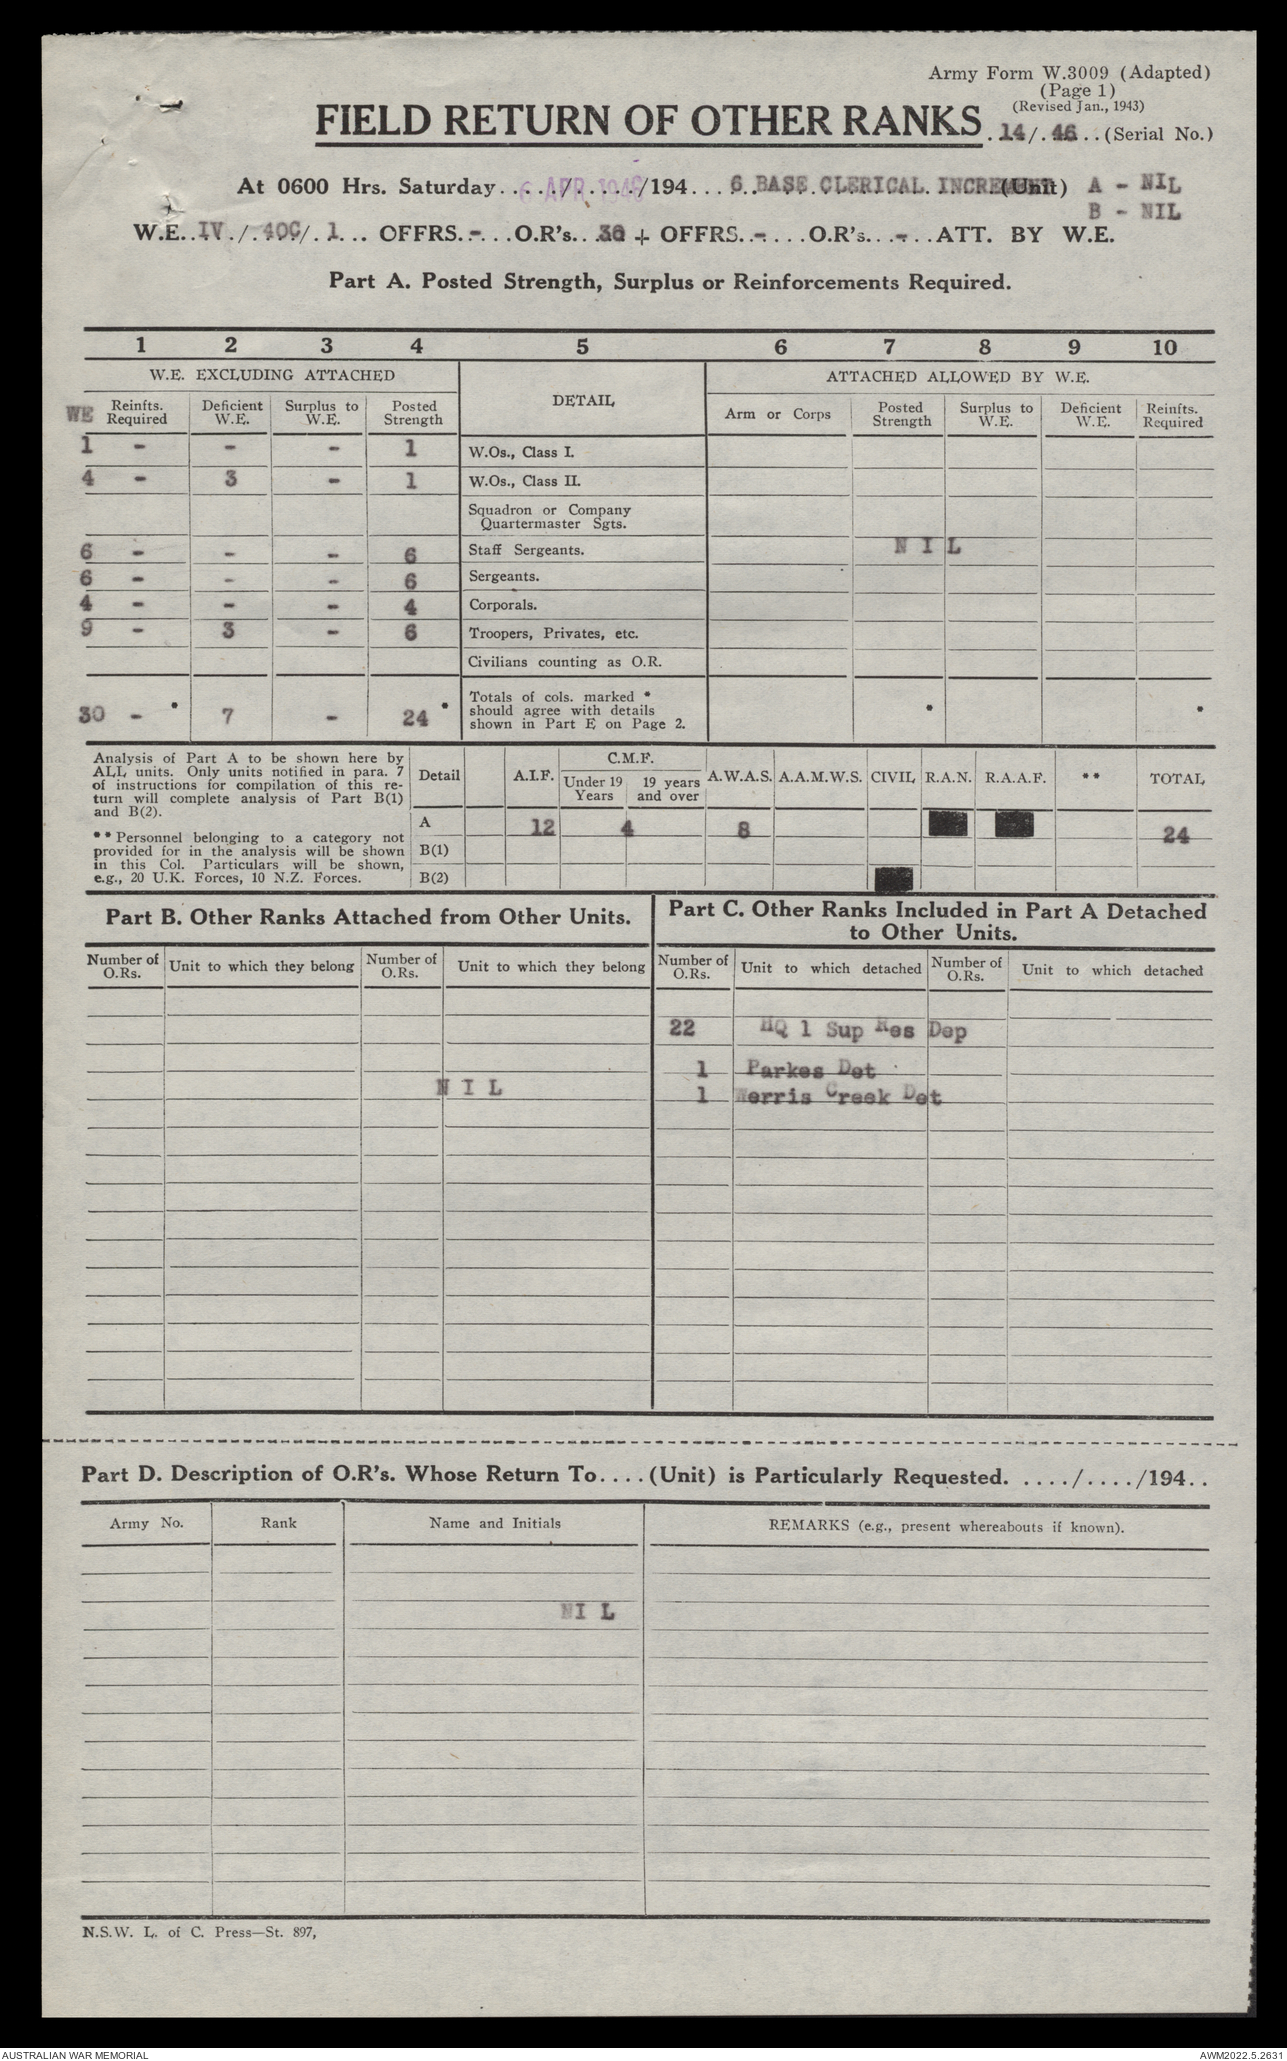 Army Form W.3009 (Adapted)
(Page 1)
(Revised Jan., 1943)
FIELD RETURN OF OTHER RANKS . 14/. 46. . (Serial No.)
At 0600 Hrs. Saturday. . 6 APR 1946 . ./194. . . 6 BASE CLERICAL INCREMENT (Unit) A - NIL
B - NIL
W.E. . IV . /. 40C/. 1. . . OFFRS. -. . . O.R's. . 30 + OFFRS. . -. . . . O.R's. . . -. . . ATT. BY W.E.
Part A. Posted Strength, Surplus or Reinforcements Required.
1 2 3 4 5 6 7 8 9 10
W.E. EXCLUDING ATTACHED DETAIL ATTACHED ALLOWED BY W.E.
WE Reinfts. Required Deficient W.E. Surplus to W.E. Posted Strength Arm or Corps Posted Strength Surplus to W.E. Deficient W.E. Reinfts. Required
1 - - - 1 W.Os., Class I.
4 - 3 - 1 W.Os., Class II.
Squadron or Company
Quartermaster Sgts.
6 - - - 6 Staff Sergeants. N I L
6 - - - 6 Sergeants.
4 - - - 4 Corporals.
9 - 3 - 6 Troopers, Privates, etc.
Civilians counting as O.R.
30 - * 7 - 24 * Totals of cols. marked * should agree with details shown in Part E on Page 2. * *
Analysis of Part A to be shown here by
ALL units. Only units notified in para. 7
of instructions for compilation of this re-
turn will complete analysis of Part B(1)
and B(2).
** Personnel belonging to a category not
provided for in the analysis will be shown
in this Col. Particulars will be shown,
e.g., 20 U.K. Forces, 10 N.Z. Forces.
Detail A.I.F. C.M.F. Under 19 Years 19 years and over A.W.A.S. A.A.M.W.S. CIVIL R.A.N. R.A.A.F. ** TOTAL
A 12 4 8 24
B(1)
B(2)
Part B. Other Ranks Attached from Other Units.
Number of O.Rs. Unit to which they belong Number of O.Rs. Unit to which they belong
N I L
Part C. Other Ranks Included in Part A Detached
to Other Units.
Number of O.Rs. Unit to which detached Number of O.Rs. Unit to which detached
22 HQ 1 Sup Res Dep
1 Parkes Det
1 Werris Creek Det
Part D. Description of O.R's. Whose Return To. . . . (Unit) is Particularly Requested. . . . . / . . . . /194. .
Army No. Rank Name and Initials REMARKS (e.g., present whereabouts if known).
NI L
N.S.W. L. of C. Press—St. 897,
AUSTRALIAN WAR MEMORIAL AWM2022.5.2631